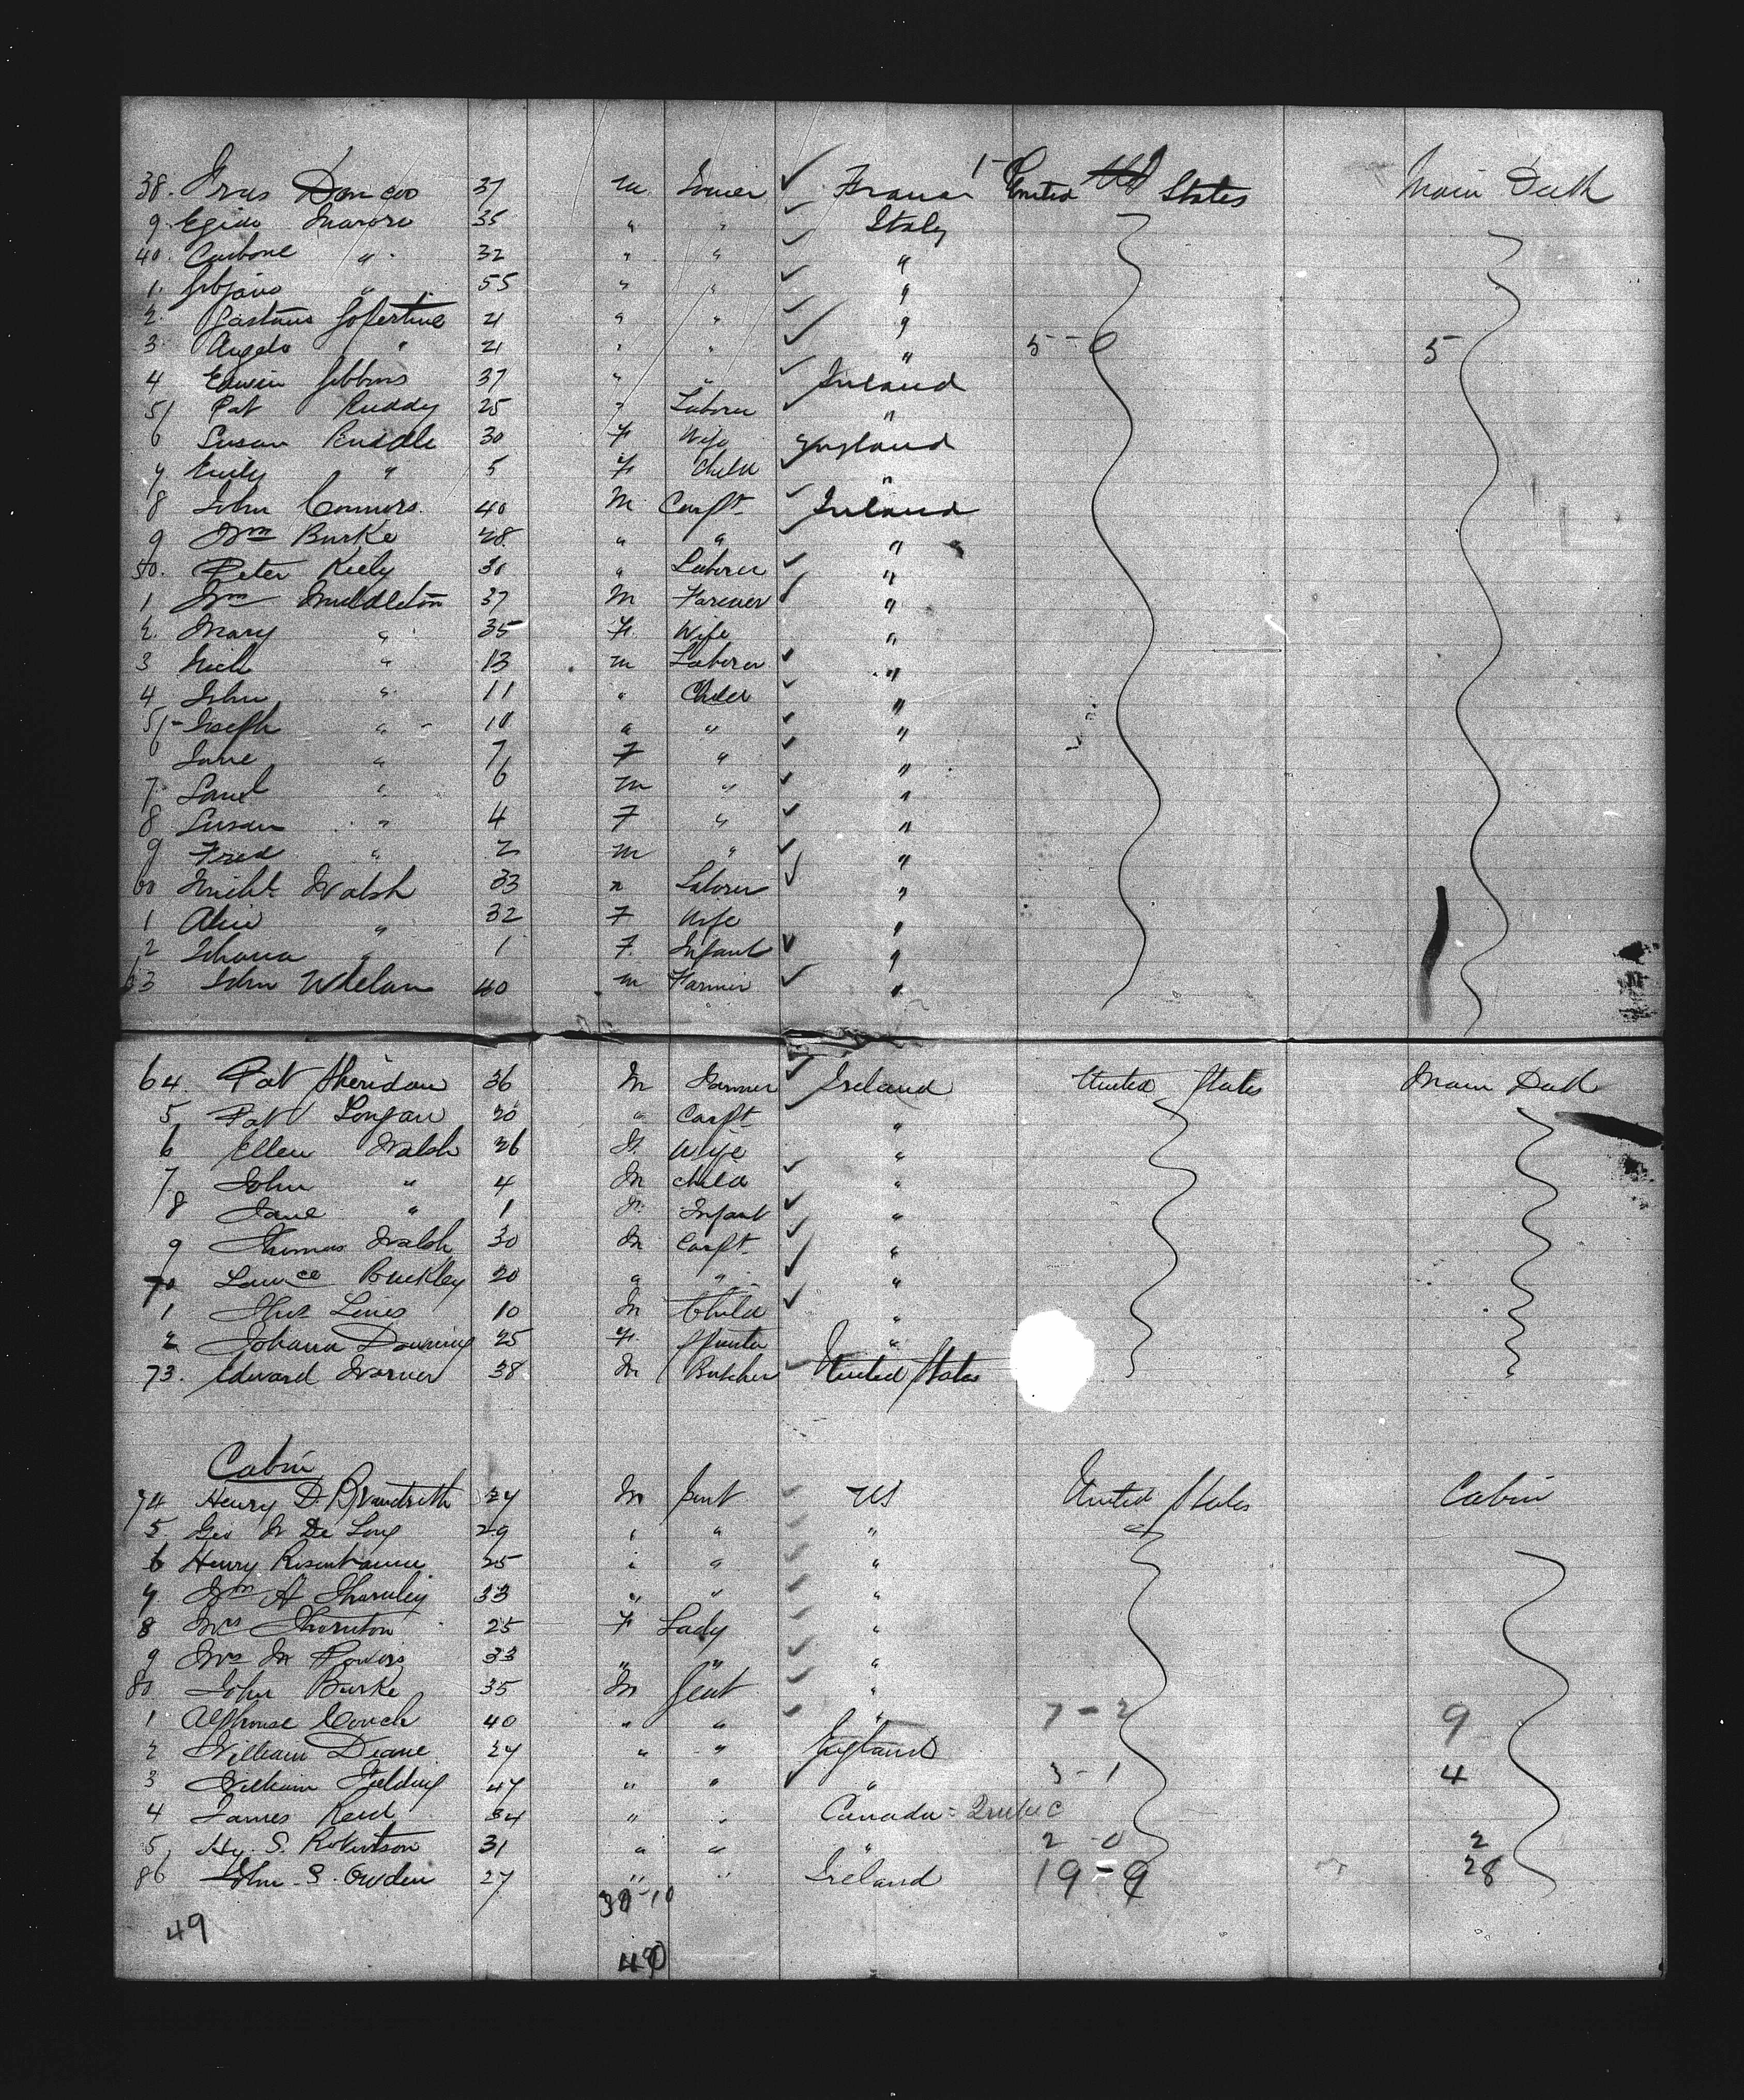 38. Dancoo 37 m France United States Main Deck
9. Egido 35 " " Italy
40. Carbone " 32 " " "
1. " 55 " " "
2. 21 " " "
3 Angelo " 21 " " " 5 - 0 5
4 Edwin Gibbons 37 " " Ireland
5 Pat Ruddy 25 " Laborer "
6 Susan Ruddle 30 F Wife England
7 Emily " 5 F Child "
8 John Connors. 40 M Carpt. Ireland
9 Wm Burke 28 " " "
50. Peter Kiely 30 " Laborer "
1 Wm Middleton 37 M Farmer "
2. Mary " 35 F. Wife "
3 Mich " 13 m Laborer "
4 John " 11 " Child "
5 - Joseph " 10 " " "
6 Jane " 7 F " "
7 " 6 m " "
8 Susan " 4 F " "
9 Fred " 2 m " "
60 Michl. Walsh 33 " Laborer "
1 Alice " 32 F Wife "
2 Johana " 1 F. Infant "
63 John Whelan 40 m Farmer "
64. Pat Sheridan 36 M Farmer Ireland United States Main Deck
5 Pat Longan 20 " Carpt. "
6 Ellen Walsh 26 F. Wife "
7 John " 4 M Child "
8 Jane " 1 F. Infant "
9 Thomas Walsh 30 M Carpt. "
70 Lawce Buckley 20 " " "
1 Thos Lines 10 M Child "
2 Johana Downing 25 F. Spinster "
73. Edward Warner 38 M Butcher United States
Cabin
74 Henry D. Brandreth 24 M Gent US United States Cabin
5. Geo W De Long 29 " " "
6 Henry Rosenbaum 25 " " "
7 Wm A Thornley 33 " " "
8 Mrs Thornton 25 F Lady "
9 Mrs M Powers 33 " " "
80 John Burke 35 M Gent "
1 Alphonse Couch 40 " " " 7 - 2 9
2 William Deane 24 " " England
3 William Fielding 47 " " " 3 - 1 4
4 James Reid 34 " " Canada = Quebec
5, Hy. S. Robertson 31 " " " 2 - 0 2
86 John S. Owden 27 " " Ireland 19 - 9 28
39 - 10
49
49